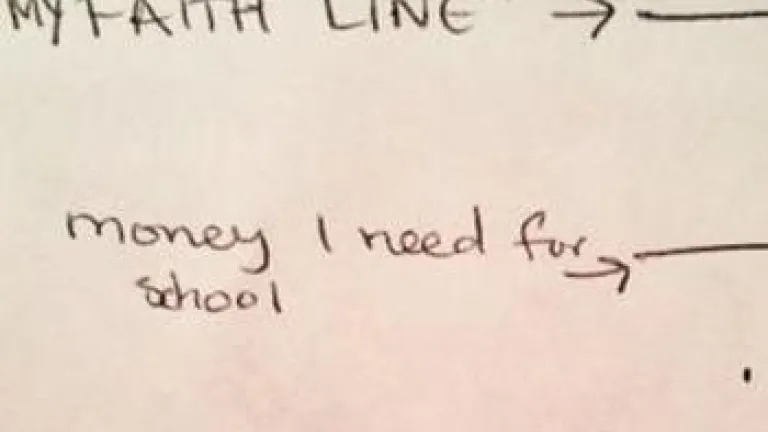 MY FAITH LINE →
money I need for →
school